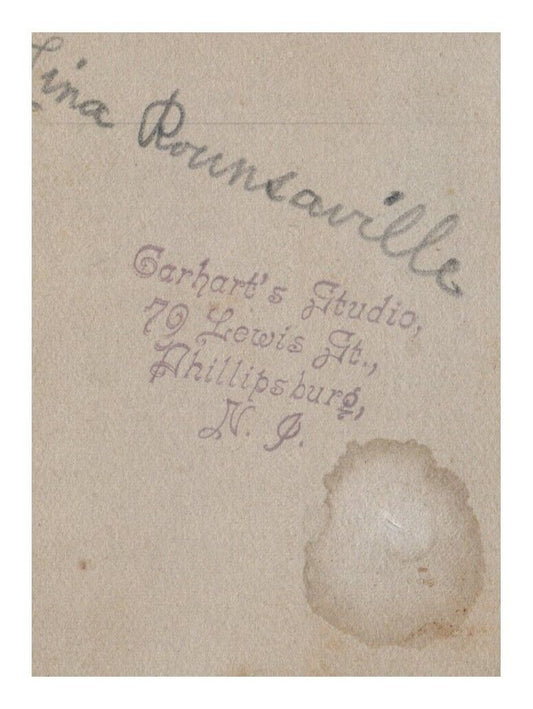 Lina Rounsaville
Carhart's Studio,
79 Lewis St.,
Phillipsburg,
N. J.